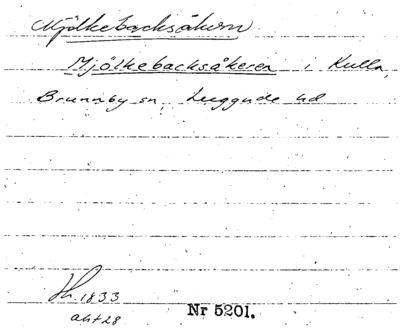 Mjölkebacksåkern
Mjölkebacksåkeren i Kulla,
Brunnby sn, Luggude hd
1833
akt 28
Nr 5201.